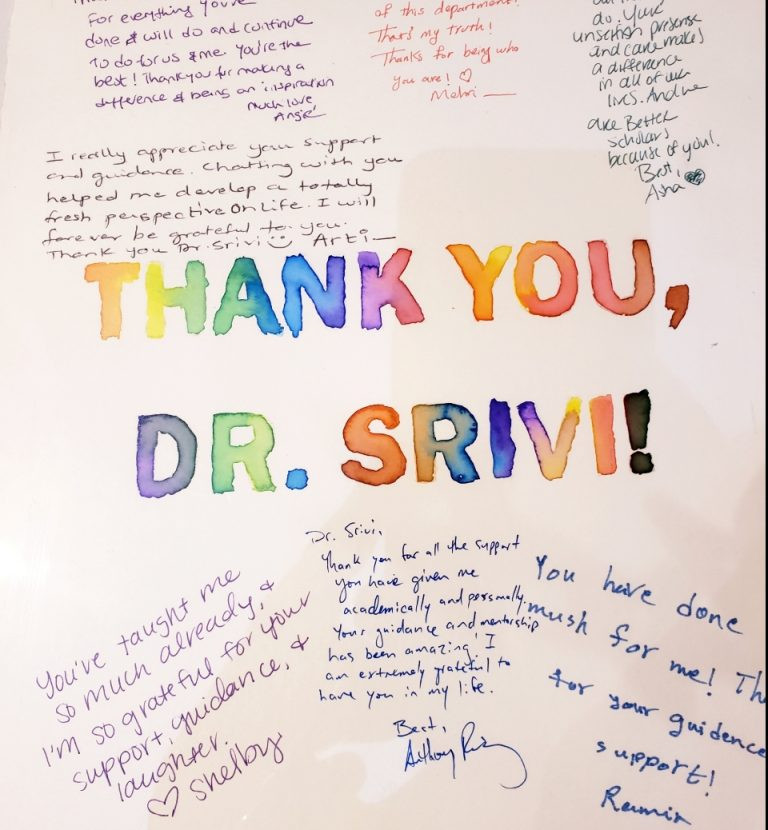 For everything you've
done & will do and continue
to do for us & me. You're the
best! Thank you for making a
difference & being an inspiration
much love,
Angie
of this department!
That's my truth!
Thanks for being who
you are! ♡
Mehri —
do. Your
unselfish presense
and care makes
a difference
in all of our
lives. And we
are Better
scholars
because of you!
Best,
Asha
I really appreciate your support
and guidance. Chatting with you
helped me develop a totally
fresh perspective on Life. I will
forever be grateful to you.
Thank you Dr. Srivi☺ Arti—
THANK YOU,
DR. SRIVI!
You've taught me
so much already, &
I'm so grateful for your
support, guidance, &
laughter.
♡ Shelby
Dr. Srivi,
Thank you for all the support
you have given me
academically and personally.
Your guidance and mentorship
has been amazing! I
am an extremely grateful to
have you in my life.
Best,
Anthony
You have done
mush for me! Th
for your guidence
support!
Ramin